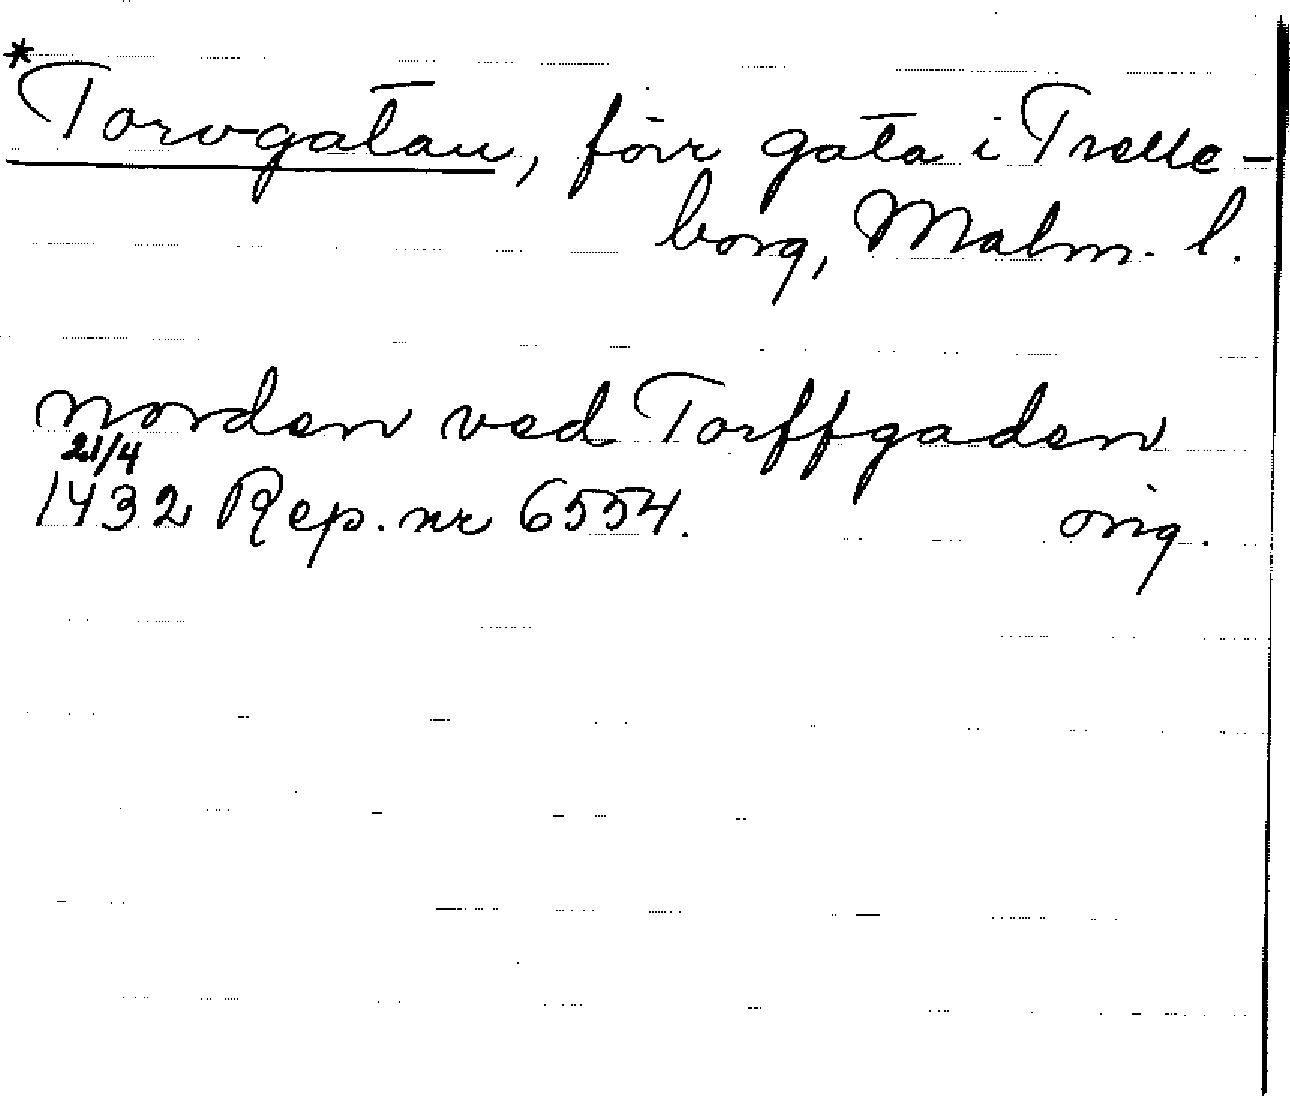 *Torvgatan, förr gata i Trelle-
borg, Malm. l.
norden ved Torffgaden
21/4
1432 Rep. nr 6554. orig.